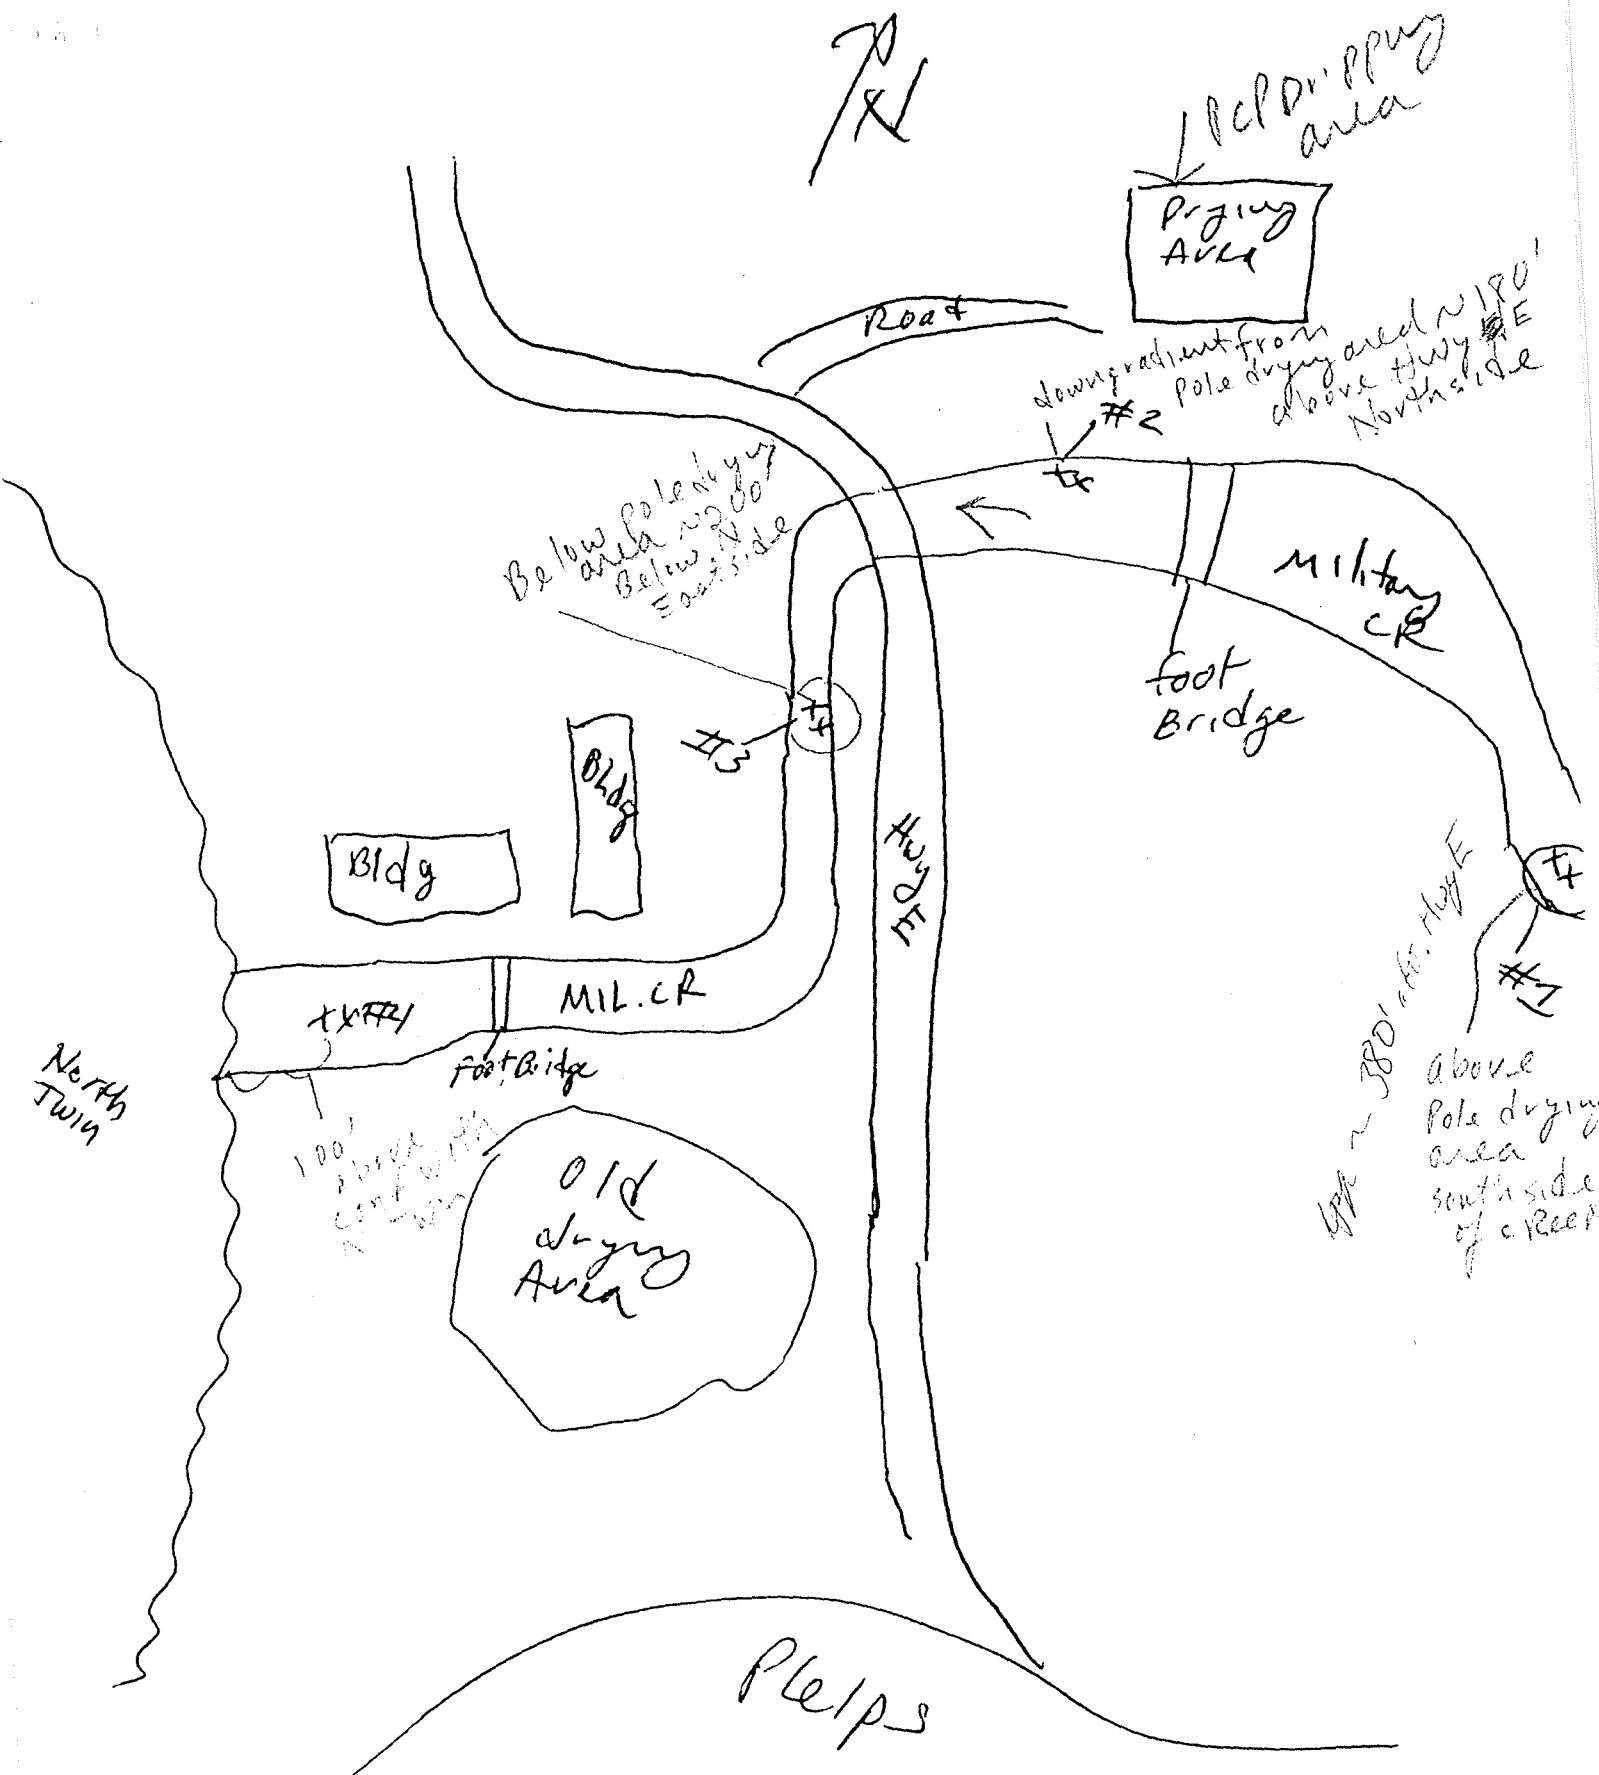 N
PCP Dripping
area
Drying
Area
Road
downgradient from
Pole drying area ~180'
above Hwy E
Northside
#2
Below Pole drying
area ~200'
Below
Eastside
Military
CR
foot
Bridge
#3
Bldg
Bldg
Hwy E
#1
app ~ 380' Hwy E
above
Pole drying
area
south side
of creek
xx#4
MIL. CR
Foot Bridge
North
Twin
100'
above
Old
drying
Area
Phelps